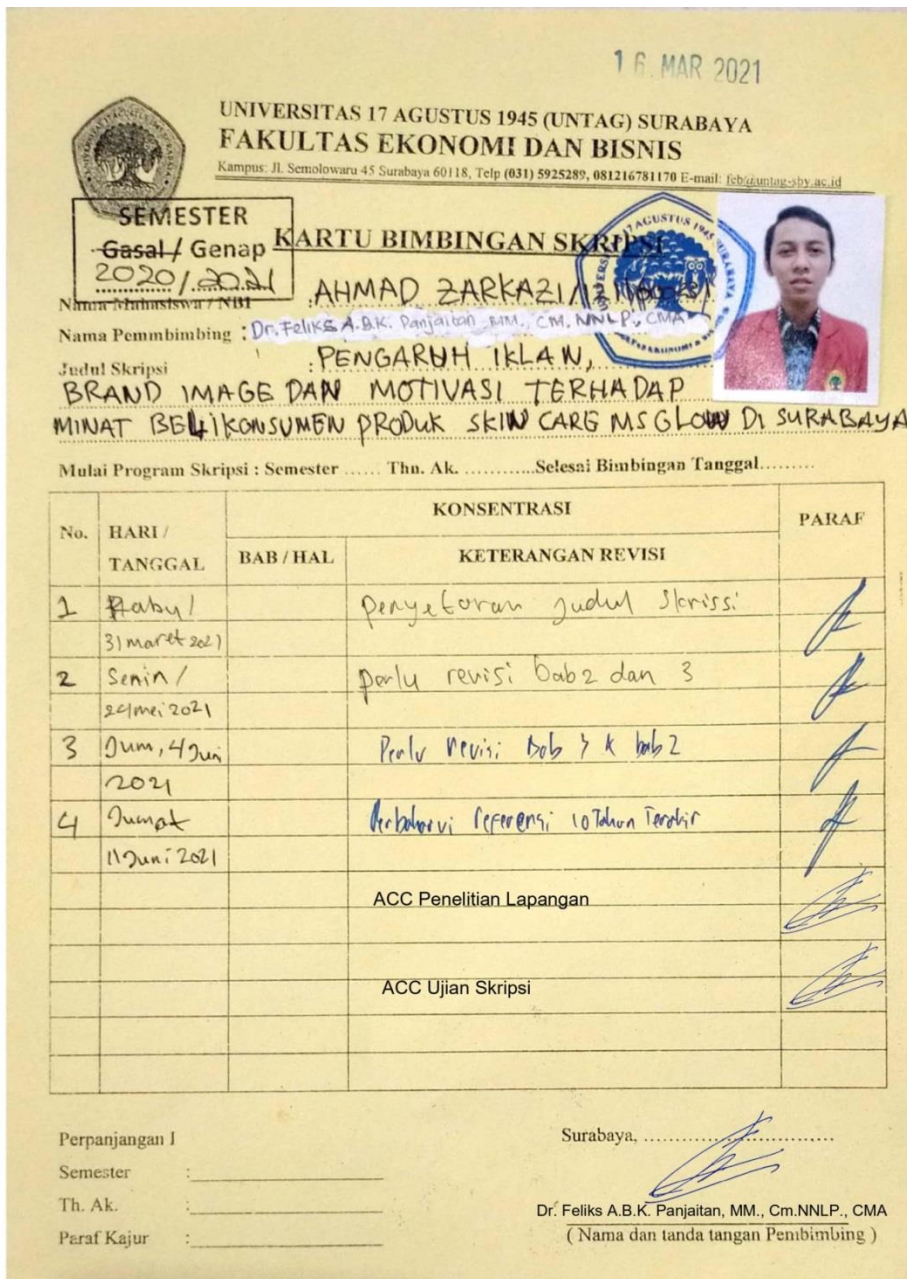 16 MAR 2021
UNIVERSITAS 17 AGUSTUS 1945 (UNTAG) SURABAYA
FAKULTAS EKONOMI DAN BISNIS
Kampus: Jl. Semolowaru 45 Surabaya 60118, Telp (031) 5925289, 081216781170 E-mail: feb@untag-sby.ac.id
SEMESTER
Gasal / Genap
2020/2021
KARTU BIMBINGAN SKRIPSI
Nama Mahasiswa / NBI : AHMAD ZARKAZI /
Nama Pemmbimbing : Dr. Feliks A.B.K. Panjaitan, MM., CM. NNLP., CMA
Judul Skripsi : PENGARUH IKLAN,
BRAND IMAGE DAN MOTIVASI TERHADAP
MINAT BELI KONSUMEN PRODUK SKIN CARE MS GLOW DI SURABAYA
Mulai Program Skripsi : Semester ...... Thn. Ak. ............Selesai Bimbingan Tanggal.........
No. HARI / TANGGAL KONSENTRASI PARAF
BAB / HAL KETERANGAN REVISI
1 Rabu / penyetoran judul Skrissi
31 maret 2021
2 Senin / perlu revisi bab 2 dan 3
24 mei 2021
3 Jum, 4 Juni Perlu revisi Bab bab 2
2021
4 Jumat referensi 10 Tahun
11 Juni 2021
ACC Penelitian Lapangan
ACC Ujian Skripsi
Perpanjangan I
Semester :
Th. Ak. :
Paraf Kajur :
Surabaya, ....................................
Dr. Feliks A.B.K. Panjaitan, MM., Cm.NNLP., CMA
( Nama dan tanda tangan Pembimbing )